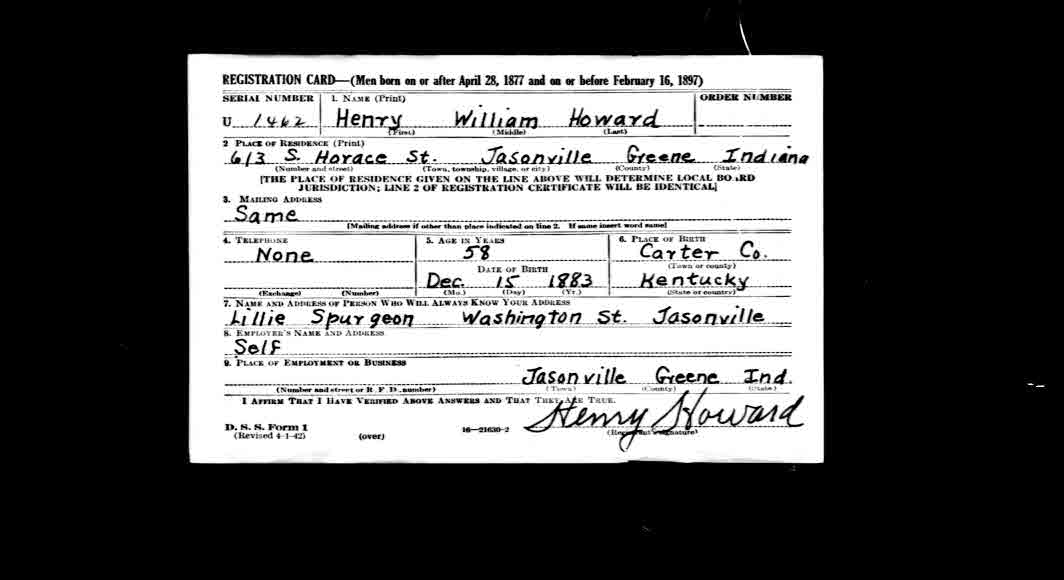 REGISTRATION CARD—(Men born on or after April 28, 1877 and on or before February 16, 1897)
SERIAL NUMBER 1. NAME (Print) ORDER NUMBER
U 1462 Henry William Howard
(First) (Middle) (Last)
2 PLACE OF RESIDENCE (Print)
613 S. Horace St. Jasonville Greene Indiana
(Number and street) (Town, township, village, or city) (County) (State)
[THE PLACE OF RESIDENCE GIVEN ON THE LINE ABOVE WILL DETERMINE LOCAL BOARD
JURISDICTION; LINE 2 OF REGISTRATION CERTIFICATE WILL BE IDENTICAL]
3. MAILING ADDRESS
Same
[Mailing address if other than place indicated on line 2. If same insert word same]
4. TELEPHONE 5. AGE IN YEARS 6. PLACE OF BIRTH
None 58 Carter Co.
DATE OF BIRTH (Town or county)
Dec. 15 1883 Kentucky
(Exchange) (Number) (Mo.) (Day) (Yr.) (State or country)
7. NAME AND ADDRESS OF PERSON WHO WILL ALWAYS KNOW YOUR ADDRESS
Lillie Spurgeon Washington St. Jasonville
8. EMPLOYER'S NAME AND ADDRESS
Self
9. PLACE OF EMPLOYMENT OR BUSINESS
Jasonville Greene Ind.
(Number and street or R. F. D. number) (Town) (County) (State)
I AFFIRM THAT I HAVE VERIFIED ABOVE ANSWERS AND THAT THEY ARE TRUE.
Henry Howard
D. S. S. Form 1 16—21630-2 (Registrant's signature)
(Revised 4-1-42) (over)